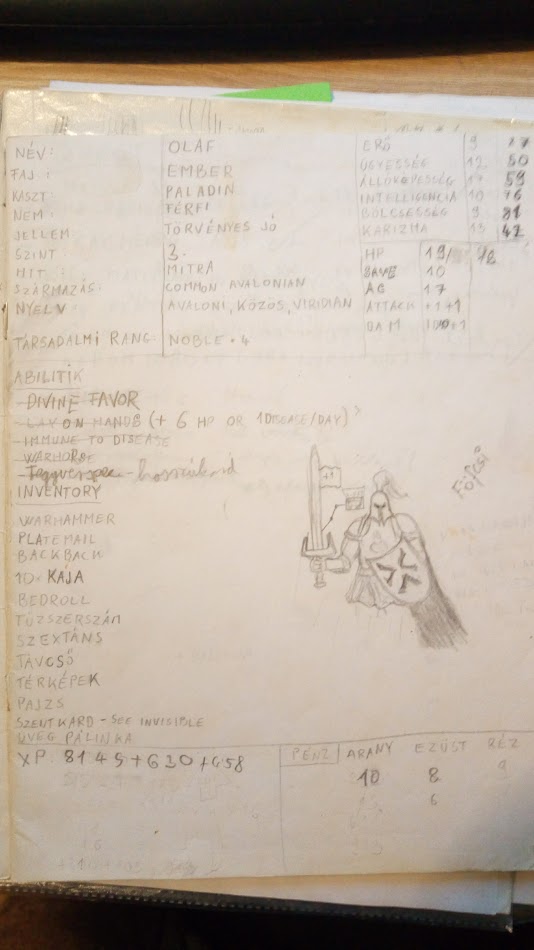 NÉV: OLAF ERŐ 9 77
FAJ: EMBER ÜGYESSÉG 12 50
KASZT: PALADIN ÁLLÓKÉPESSÉG 59
NEM: FÉRFI INTELLIGENCIA 10 76
JELLEM TÖRVÉNYES JÓ BÖLCSESSÉG 9 81
SZINT: 3. KARIZMA 42
HIT: MITRA HP 19/
SZÁRMAZÁS: COMMON AVALONIAN SAVE 10
NYELV AVALONI, KÖZÖS, VIRIDIAN AC 17
ATTACK +1+1
TÁRSADALMI RANG: NOBLE • 4 DAM
ABILITIK
- DIVINE FAVOR
- LAY ON HANDS (+ 6 HP OR 1 DISEASE/DAY)
- IMMUNE TO DISEASE
- WARHORSE
- Fegyverspec - hosszúkard
INVENTORY
WARHAMMER
PLATEMAIL
BACKBACK
10× KAJA
BEDROLL
TŰZSZERSZÁM
SZEXTÁNS
TÁVCSŐ
TÉRKÉPEK
PAJZS
SZENT KARD - SEE INVISIBLE
ÜVEG PÁLINKA
XP: 8145+630+458
PÉNZ ARANY EZÜST RÉZ
10 8 9
6